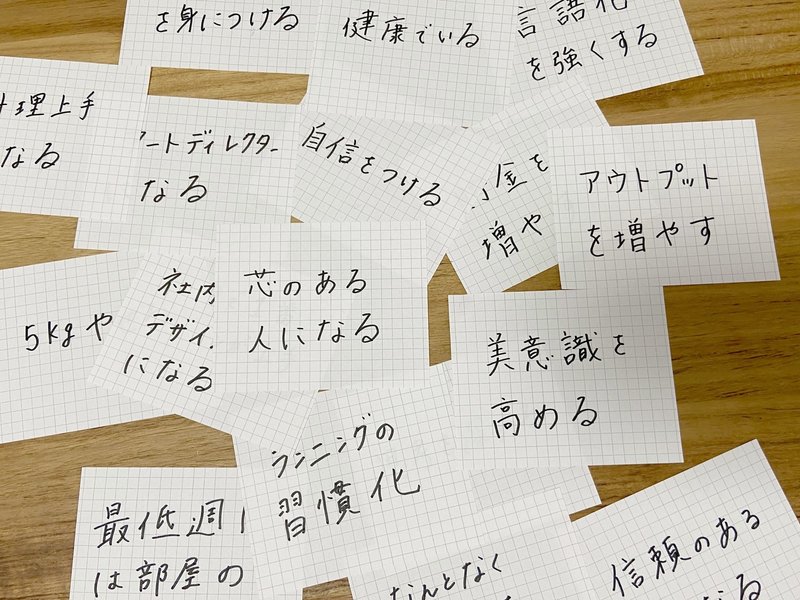 を身につける
健康でいる
言語化
を強くする
理上手
なる
ートディレクター
なる
自信をつける
金を
増や
アウトプット
を増やす
5kgや
社内
デザイ
になる
芯のある
人になる
美意識を
高める
ランニングの
習慣化
最低週1
は部屋の
なんとなく
信頼のある
なる